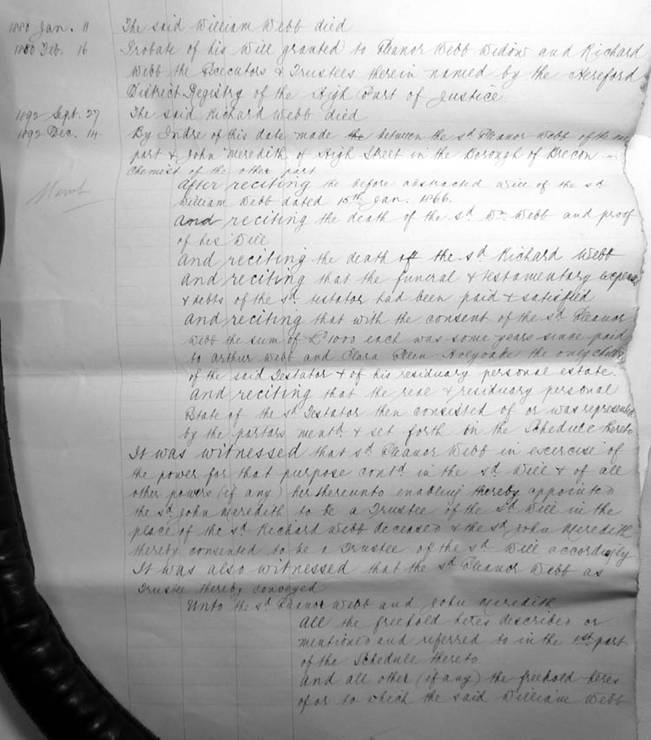 1880 Jan. 11 The said William Webb died
1880 Feb. 16 Probate of his Will granted to Eleanor Webb Widow and Richard
Webb the Executors & Trustees therein named by the Hereford
District Registry of the High Court of Justice
1892 Sept. 27 The said Richard Webb died
1892 Dec. 14 By Indre of this date made between the sd Eleanor Webb of the one
part & John Meredith of High Street in the Borough of Brecon
Chemist of the other part
After reciting the before abstracted Will of the sd
William Webb dated 15th Jan. 1866.
And reciting the death of the sd Wm Webb and proof
of his Will
And reciting the death of the sd Richard Webb
And reciting that the funeral & testamentary expenses
& debts of the sd testator had been paid & satisfied
And reciting that with the consent of the sd Eleanor
Webb the sum of £1000 each was some years since paid
to Arthur Webb and Clara Ellen Holyoake the only children
of the said Testator & of his residuary personal estate.
And reciting that the real & residuary personal
Estate of the sd Testator then consisted of or was represented
by the partars mentd & set forth in the Schedule thereto
It was witnessed that sd Eleanor Webb in exercise of
the power for that purpose contd in the sd Will & of all
other powers (if any) her thereunto enabling thereby appointed
the sd John Meredith to be a Trustee of the sd Will in the
place of the sd Richard Webb deceased & the sd John Meredith
thereby consented to be a Trustee of the sd Will accordingly
It was also witnessed that the sd Eleanor Webb as
Trustee thereby conveyed
Unto the sd Eleanor Webb and John Meredith
All the freehold heres described or
mentioned and referred to in the 1st part
of the Schedule thereto
And all other (if any) the freehold heres
of or to which the said William Webb